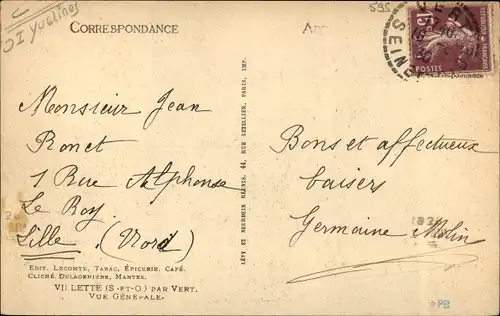 OI Yvelines
595
CORRESPONDANCE
SEINE
15
POSTES
Monsieur Jean
Ronet
1 Rue Alphonse
Le Roy
Lille (Nord)
EDIT. LECOMTE, TABAC, ÉPICERIE, CAFÉ.
CLICHÉ DELAGENIÈRE, MANTES.
VILLETTE (S-ET-O) PAR VERT.
VUE GÉNÉRALE.
LÉVY ET NEURDEIN RÉUNIS, 44, RUE LETELLIER, PARIS, IMP.
Bons et affectueux
baisers
Germaine Molin
PB